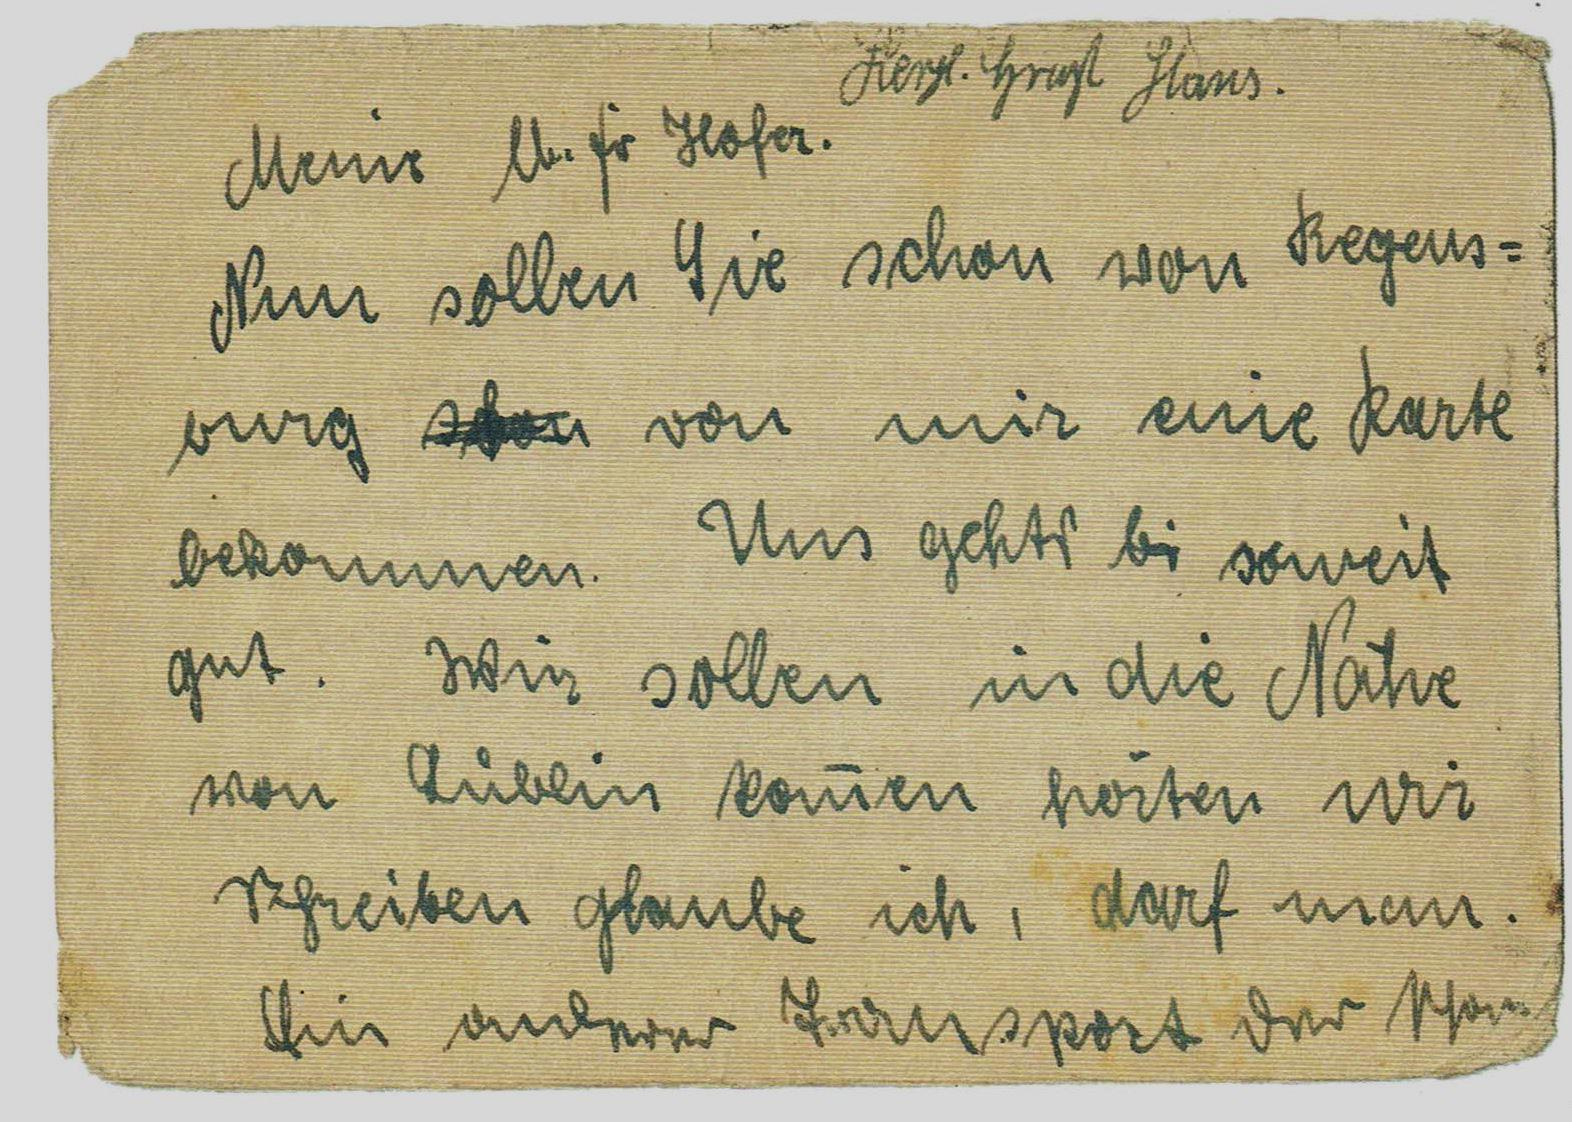 Herzl. Gruß Hans.
Meine lb. Fr Hofer.
Nun sollen Sie schon von Regens=
burg schon von mir eine Karte
bekommen. Uns gehts bis soweit
gut. Wir sollen in die Nähe
von Lublin kom̅en hörten wir
Schreiben glaube ich, darf man.
Ein anderer Transport der schon